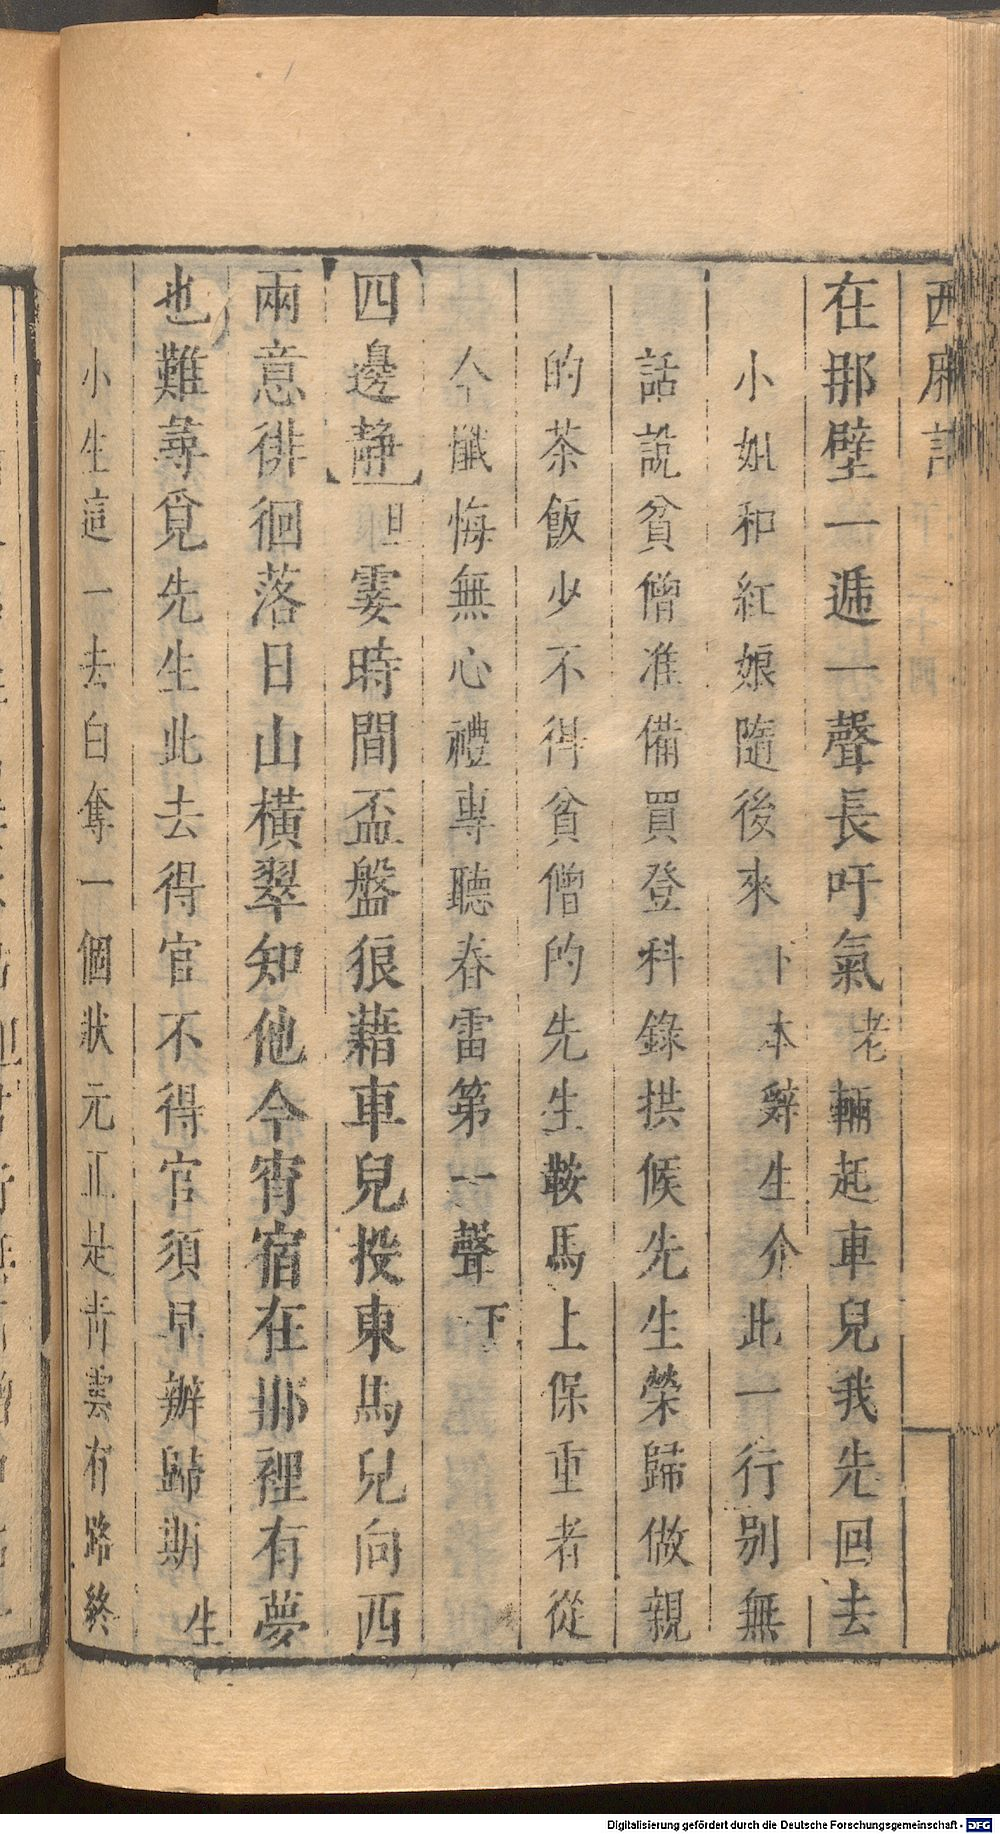 西廂記
在那壁一遞一聲長吁氣老輛起車兒我先回去
小姐和紅娘隨後來下本辭生介此一行別無
話說貧僧准備買登科錄拱候先生榮歸做親
的茶飯少不得貧僧的先生鞍馬上保重者從
今懺悔無心禮專聽春雷第一聲下
四邊静旦霎時間盃盤狼藉車兒投東馬兒向西
兩意徘徊落日山橫翠知他今宵宿在那裡有夢
也難尋覓先生此去得官不得官須早辦歸期生
小生這一去白奪一個狀元正是青雲有路終
Digitalisierung gefördert durch die Deutsche Forschungsgemeinschaft - DFG